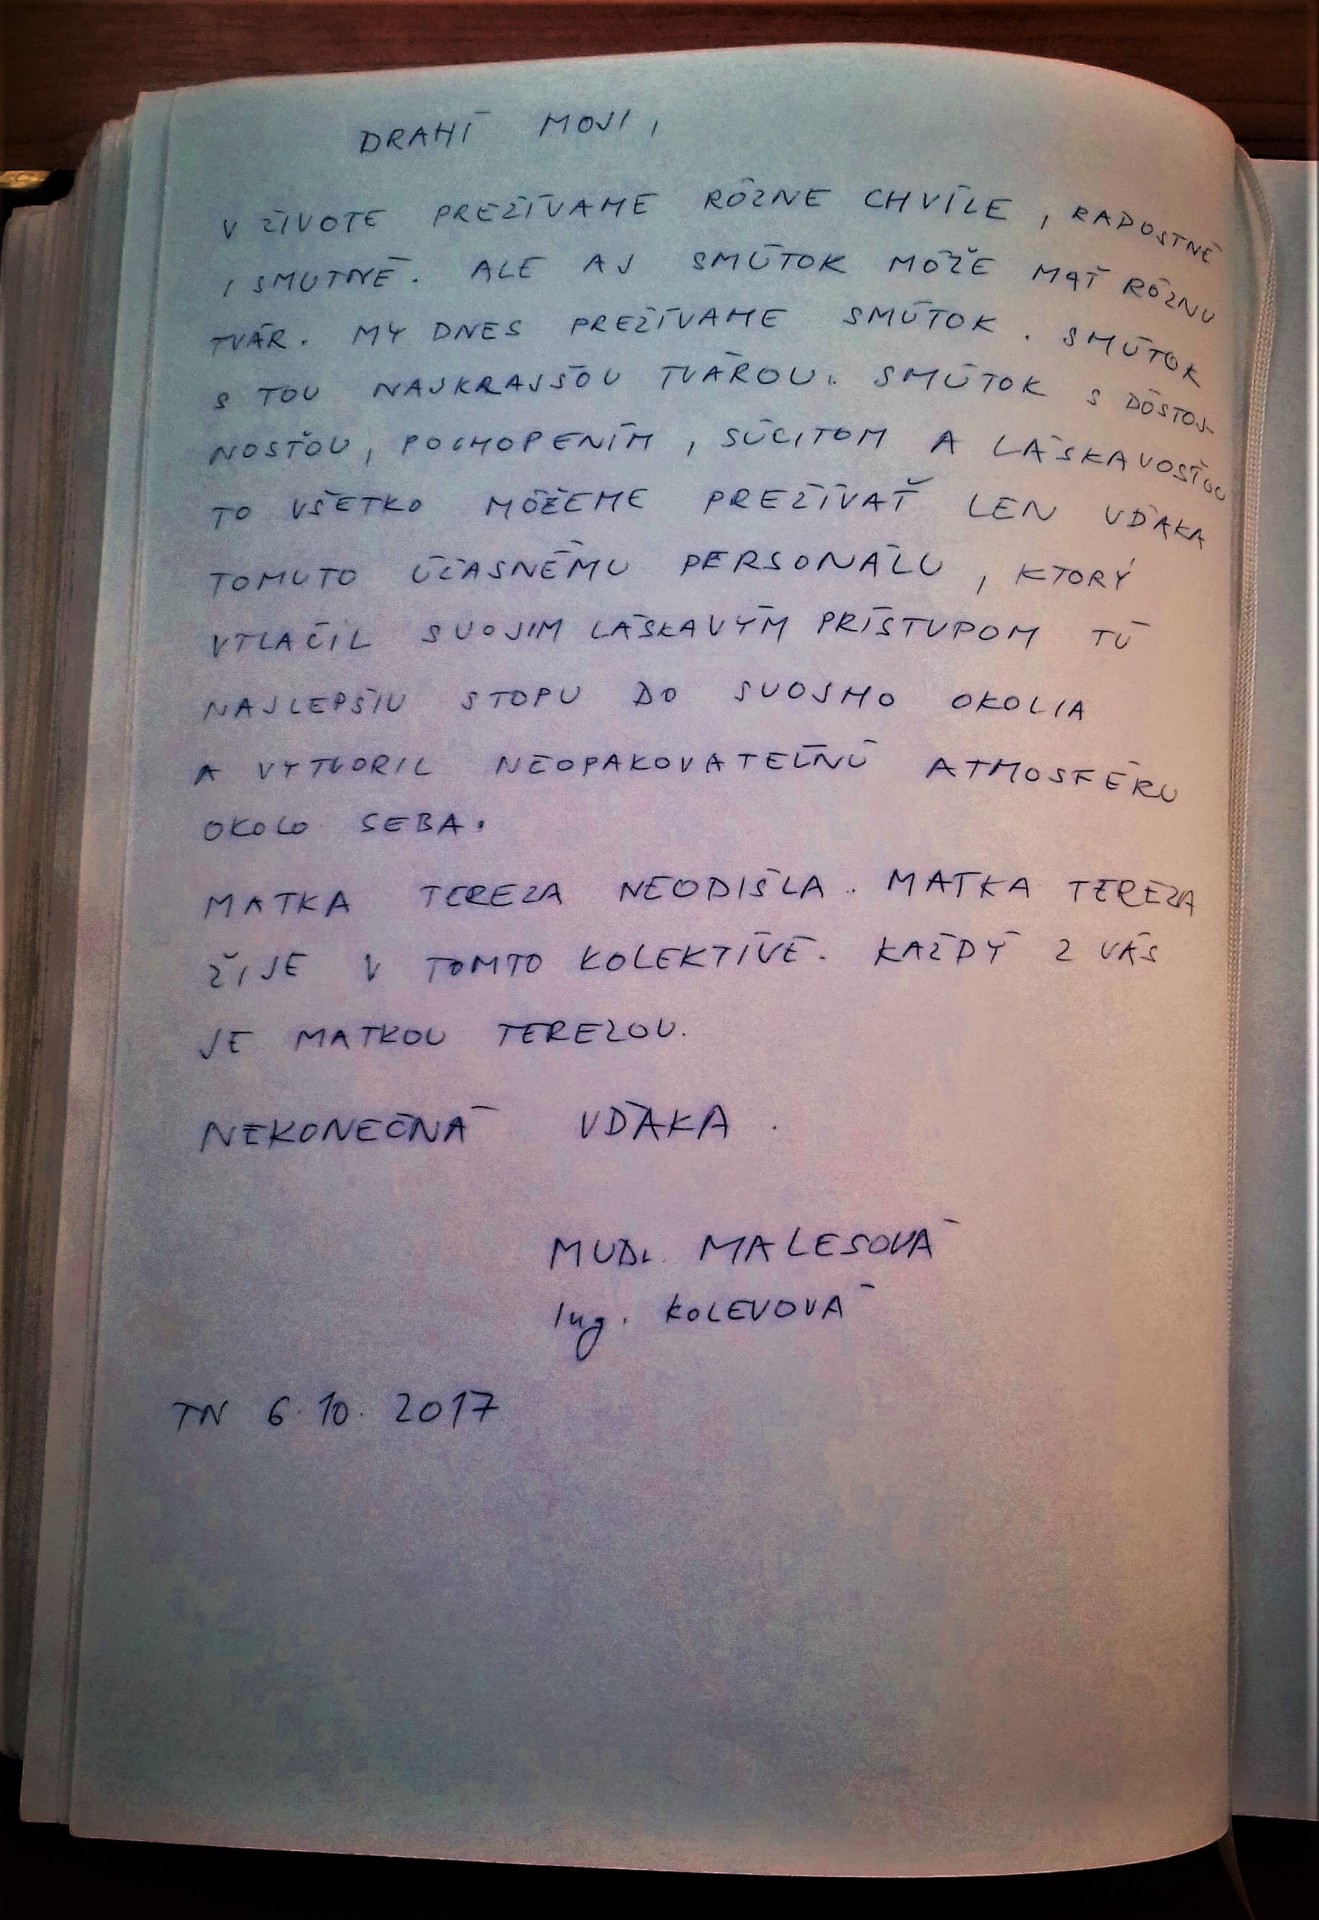 DRAHÍ MOJI,
V ŽIVOTE PREŽÍVAME RÔZNE CHVÍLE, RADOSTNÉ
I SMUTNÉ. ALE AJ SMÚTOK MÔŽE MAŤ RÔZNU
TVÁR. MY DNES PREŽÍVAME SMÚTOK. SMÚTOK
S TOU NAJKRAJŠOU TVÁROU. SMÚTOK S DÔSTOJ-
NOSŤOU, POCHOPENÍM, SÚCITOM A LÁSKAVOSŤOU
TO VŠETKO MÔŽEME PREŽÍVAŤ LEN VĎAKA
TOMUTO ÚČASNÉMU PERSONÁLU, KTORÝ
VTLAČIL SVOJIM LÁSKAVÝM PRÍSTUPOM TÚ
NAJLEPŠIU STOPU DO SVOJHO OKOLIA
A VYTVORIL NEOPAKOVATEĽNÚ ATMOSFÉRU
OKOLO SEBA.
MATKA TEREZA NEODIŠLA. MATKA TEREZA
ŽIJE V TOMTO KOLEKTÍVE. KAŽDÝ Z VÁS
JE MATKOU TEREZOU.
NEKONEČNÁ VĎAKA.
MUDr. MALESOVÁ
Ing. KOLEVOVÁ
TN 6.10.2017